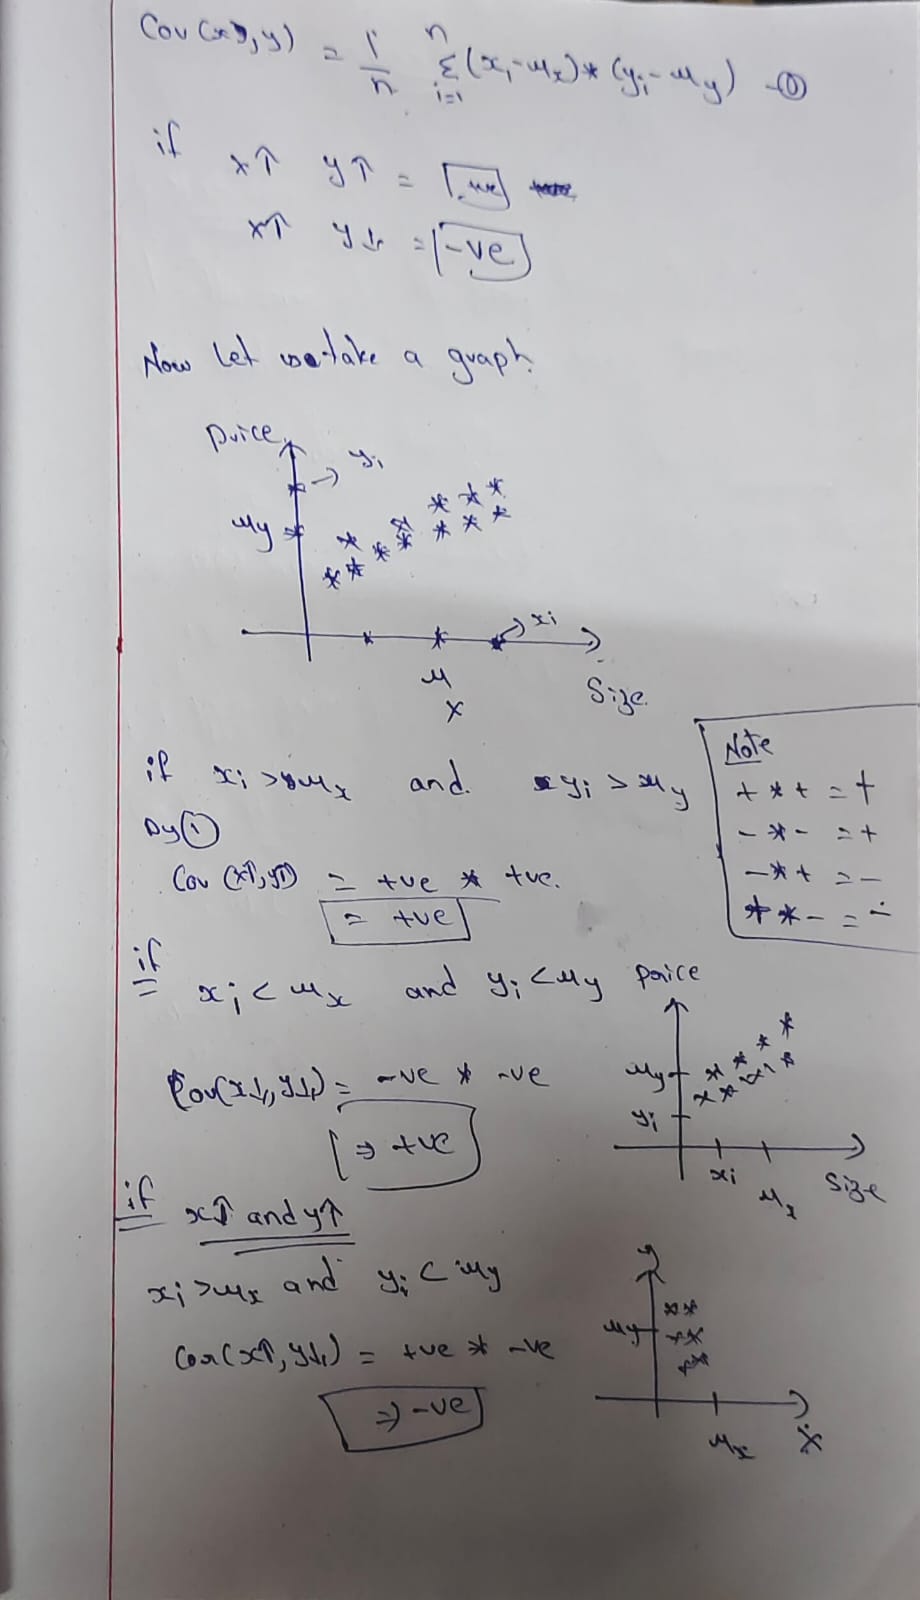 Cov (x, y) = 1/n n Σ i=1 (xi - μx) * (yi - μy) -①
if
x↑ y↑ = +ve
x↑ y↓ = -ve
Now Let us take a graph.
price
→ yi
μy
→ xi
μ
x
Size
if xi > μx and yi > μy
By ①
Cov (x↑, y↑) = +ve * +ve.
= +ve
Note
+ * + = +
- * - = +
- * + = -
+ * - = -
if
xi < μx and yi < μy
Cov(x↓, y↓) = -ve * -ve
⇒ +ve
price
μy
yi
xi
μx
Size
if x↑ and y↑
xi > μx and yi < μy
Cov(x↑, y↓) = +ve * -ve
⇒ -ve
y
μy
μx
x